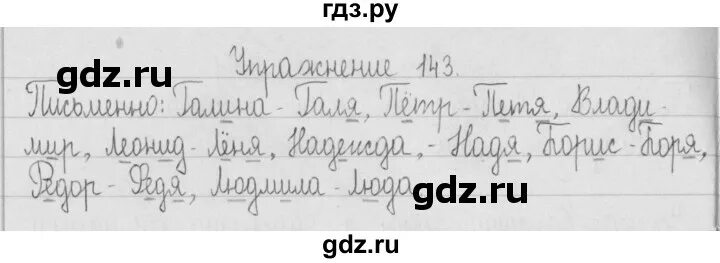 гдз.ру
Упражнение 143.
gdz.ru
Письменно: Галина - Галя, Пётр - Петя, Влади-
мир, Леонид - Лёня, Надежда, - Надя, Борис - Боря,
Федор - Федя, Людмила - Люда
gdz.ru
gdz.ru